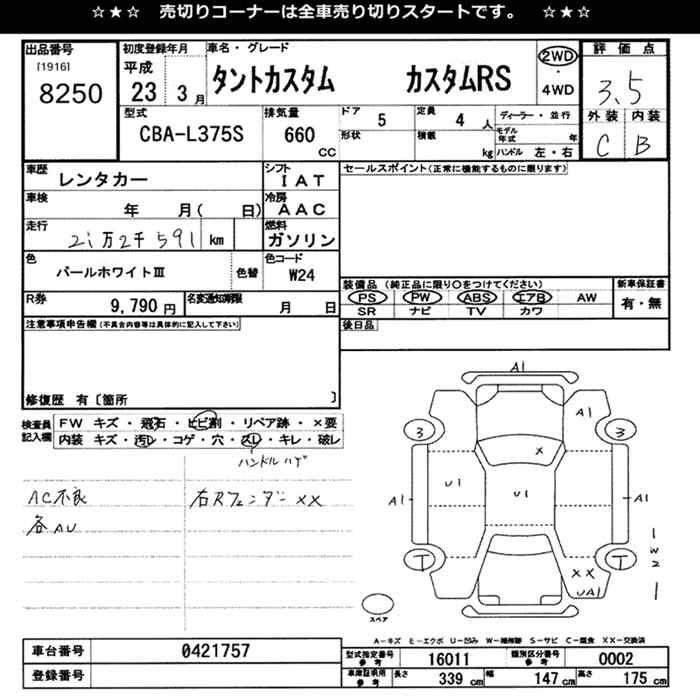 ☆★☆　売切りコーナーは全車売り切りスタートです。　☆★☆
出品番号 [1916] 8250
初度登録年月 平成 23 3 月
車名・グレード タントカスタム カスタムRS
2WD ・ 4WD
評価点 3.5
外装 C 内装 B
型式 CBA-L375S
排気量 660 CC
ドア 5 定員 4 人
形状 積載 kg
ディーラー・並行
モデル年式 年
ハンドル 左・右
車歴 レンタカー
シフト IAT
車検 年 月( 日)
冷房 AAC
走行 2i万2千591 km
燃料 ガソリン
色 パールホワイトⅢ 色替
色コード W24
R券 9,790 円
名変通知期限 月 日
セールスポイント(正常に機能するものに限ります)
装備品 (純正品に限り○をつけてください)
PS PW ABS エアB AW
SR ナビ TV カワ
新車保証書 有・無
後日品
注意事項申告欄(不具合内容等は具体的に記入して下さい)
修復歴 有〔箇所 〕
検査員記入欄
FW キズ・飛石・ヒビ割・リペア跡・×要
内装 キズ・汚レ・コゲ・穴・スレ・キレ・破レ
ハンドルハゲ
AC不良
各AU
右Rフェンダー XX
A1
A1
3
3
X
U1
U1
A1
A1
T
T
XX
UA1
W2
スペア
A－キズ E－エクボ U－凹み W－補修跡 S－サビ C－腐食 XX－交換済
車台番号 0421757
登録番号
型式指定番号 参考 16011
類別区分番号 参考 0002
車庫証明用 参考 長さ 339 cm 幅 147 cm 高さ 175 cm